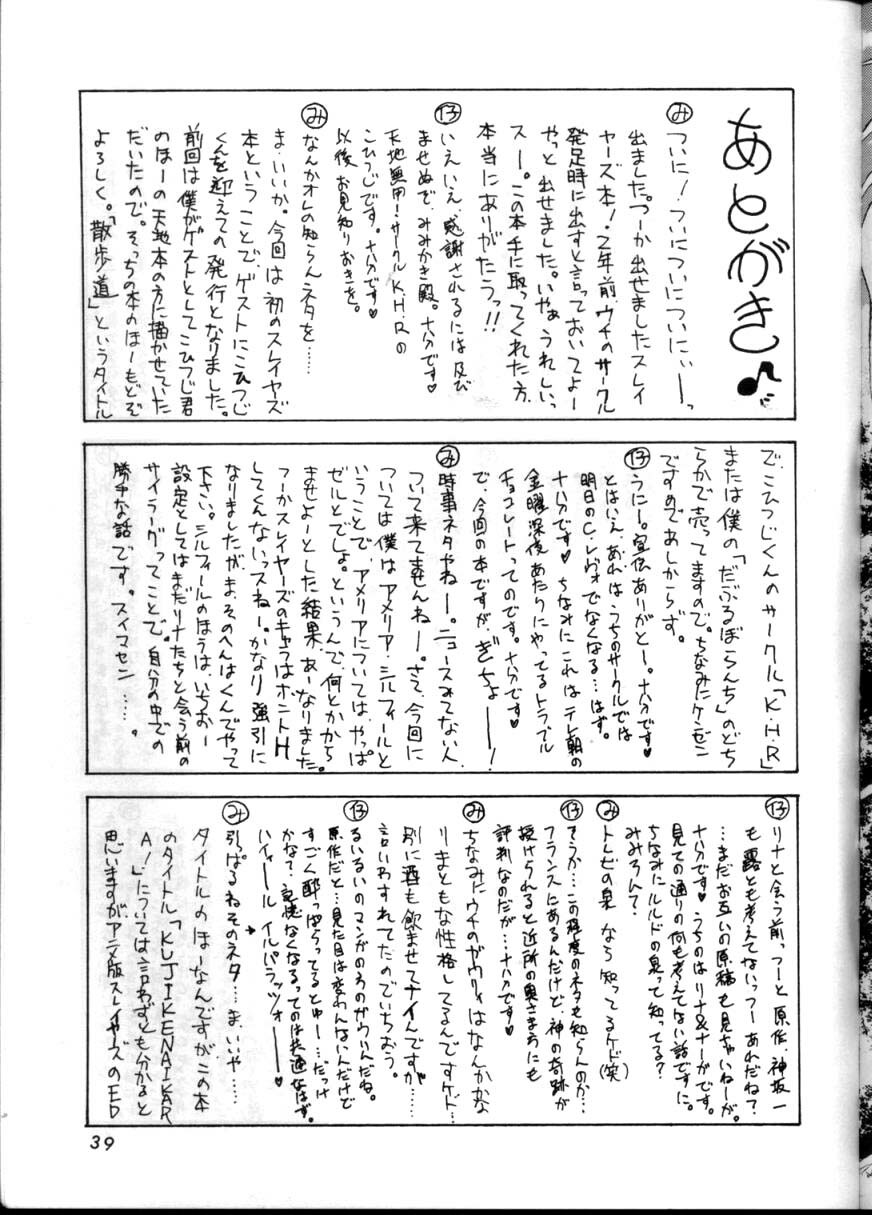 あとがき♪
み ついに！ついについについにぃーっ
出ました。つーか出せましたスレイ
ヤーズ本！2年前、ウチのサークル
発足時に出すと言っておいてよー
やっと出せました。いやぁ、うれしいっ
スー。この本手に取ってくれた方、
本当にありがたうっ!!
13 いえいえ、感謝されるには及び
ませぬで、みみかき殿。十八分です♥
天地無用！サークルK.H.Rの
こひつじです。十八分です♥
以後、お見知りおきを。
み なんかオレの知らんネタを……
ま、いいか。今回は初のスレイヤーズ
本ということで、ゲストにこひつじ
くんを迎えての発行となりました。
前回は僕がゲストとしてこひつじ君
のほーの天地本の方に描かせていた
だいたので。そっちの本のほーもどぞ
よろしく。「散歩道」というタイトル
で、こひつじくんのサークル「K・H・R」
または僕の「だぶるぼらんち」のどち
らかで売ってますので。ちなみにケンゼン
ですのであしからず。
13 うにー。宣伝ありがとー。十八分です♥
とはいえ、あれはうちのサークルでは
明日のC.レヴォでなくなる…はず。
十八分です♥ ちなみにこれはテレ朝の
金曜深夜あたりにやってるトラブル
チョコレートってのです。十八分です♥
で、今回の本ですが、ぎちょーーー！
み 時事ネタやねー。ニュースみてない人、
ついて来てませんねー。さて、今回に
ついては僕はアメリア、シルフィールと
いうことで、アメリアについては、やっぱ
ゼルとでしょ。というんで、何とかから
ませよーとした結果、あーなりました。
つーかスレイヤーズのキャラはホントH
してくんないっスねー。かなり強引に
なりましたが、ま、そのへんはくんでやって
下さい。シルフィールのほうは、いちおー
設定としてはまだリナたちと会う前の
サイラーグってことで。自分の中での
勝手な話です。スイマセン……。
13 リナと会う前っつーと原作、神坂一
も露とも考えてないっつーあれだね？
…まだお互いの原稿も見ちゃいねーが。
十八分です♥ うちのはリナ&ナーガです。
見ての通りの何も考えてない話ですに。
ちなみにルルドの泉って知ってる？
みみろんて？
み トレビの泉なら知ってるケド(笑)
13 そうか…この程度のネタも知らんのか…
フランスにあるんだけど、神の奇跡が
授けられると近所の奥さまにも
評判なのだが…十八分です♥
み ちなみにウチのガウリィはなんかかな
りまともな性格してるんですケド…
別に酒も飲ませてナイんですが……
言いわすれてたのでいちおう。
13 るいるいのマンガのものがウリんだね。
原作だと…見た目は変わんないんだけど
すごく酔っぱらってるとゆー…だっけ
かな？記憶なくなるってのは共通なはず。
ハイィール イルパラッツォーー♥
み 引っぱるねそのネタ…ま、いいや……
タイトルのほーなんですが、この本
のタイトル「KUJIKENAIKAR
A！」については言わずとも分かると
思いますが、アニメ版スレイヤーズのED
39